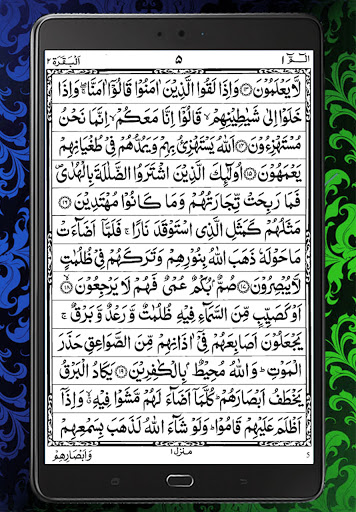 الٓمّٓ ١ ٥ اَلْبَقَرَة ٢
لَّا يَعْلَمُوْنَ ﴿١٣﴾ وَاِذَا لَقُوا الَّذِيْنَ اٰمَنُوْا قَالُوْٓا اٰمَنَّا ۖۚ وَاِذَا
خَلَوْا اِلٰى شَيٰطِيْنِهِمْ ۙ قَالُوْٓا اِنَّا مَعَكُمْ ۙ اِنَّمَا نَحْنُ
مُسْتَهْزِءُوْنَ ﴿١٤﴾ اَللّٰهُ يَسْتَهْزِئُ بِهِمْ وَيَمُدُّهُمْ فِيْ طُغْيَانِهِمْ
يَعْمَهُوْنَ ﴿١٥﴾ اُولٰٓئِكَ الَّذِيْنَ اشْتَرَوُا الضَّلٰلَةَ بِالْهُدٰى ۪
فَمَا رَبِحَتْ تِّجَارَتُهُمْ وَمَا كَانُوْا مُهْتَدِيْنَ ﴿١٦﴾
مَثَلُهُمْ كَمَثَلِ الَّذِى اسْتَوْقَدَ نَارًا ۚ فَلَمَّآ اَضَآءَتْ
مَا حَوْلَهٗ ذَهَبَ اللّٰهُ بِنُوْرِهِمْ وَتَرَكَهُمْ فِيْ ظُلُمٰتٍ
لَّا يُبْصِرُوْنَ ﴿١٧﴾ صُمٌّۢ بُكْمٌ عُمْيٌ فَهُمْ لَا يَرْجِعُوْنَ ﴿١٨﴾
اَوْ كَصَيِّبٍ مِّنَ السَّمَآءِ فِيْهِ ظُلُمٰتٌ وَّرَعْدٌ وَّبَرْقٌ ۚ
يَجْعَلُوْنَ اَصَابِعَهُمْ فِيْٓ اٰذَانِهِمْ مِّنَ الصَّوَاعِقِ حَذَرَ
الْمَوْتِ ؕ وَاللّٰهُ مُحِيْطٌۢ بِالْكٰفِرِيْنَ ﴿١٩﴾ يَكَادُ الْبَرْقُ
يَخْطَفُ اَبْصَارَهُمْ ؕ كُلَّمَآ اَضَآءَ لَهُمْ مَّشَوْا فِيْهِ ۙ وَاِذَآ
اَظْلَمَ عَلَيْهِمْ قَامُوْا ؕ وَلَوْ شَآءَ اللّٰهُ لَذَهَبَ بِسَمْعِهِمْ
وَاَبْصَارِهِمْ منزل ١ 5